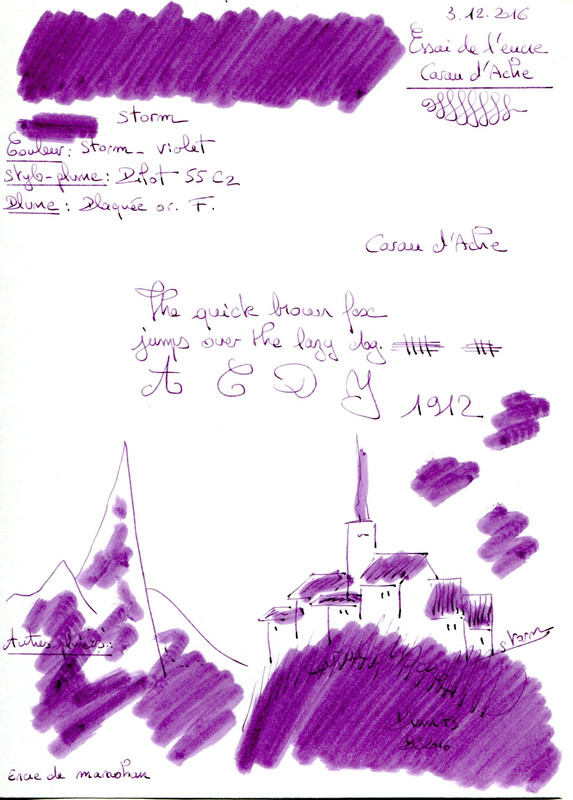 3.12.2016
Essai de l'encre
Caran d'Ache
Storm
Couleur: Storm - violet
Stylo-plume: Pilot 55 C2
Plume: Plaquée or. F.
Caran d'Ache
The quick brown fox
jumps over the lazy dog.
A C D Y 1912
storm
Autres
2016
Encre de